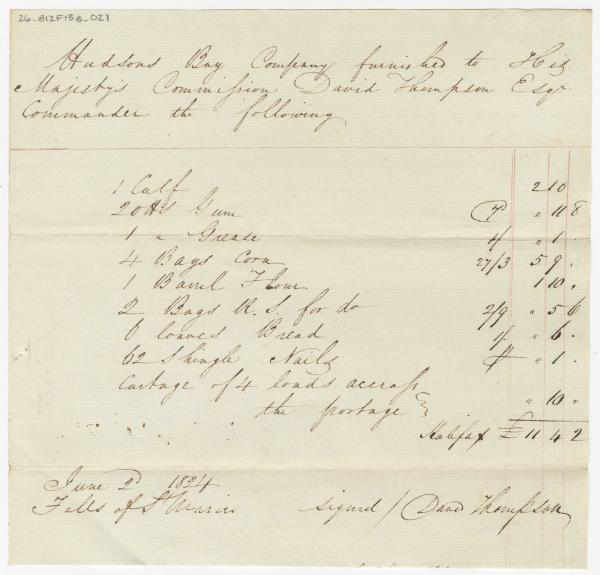 26-B12F13B-021
Hudsons Bay Company furnished to His
Majesty's Commission David Thompson Esqr
Commander the following
1 Calf 2 10
20 lbs Gum 7d " 11 8
1 " Grease 1/ " 1 .
4 Bags Corn 27/3 5 9 .
1 Barrel Flour 1 10 .
2 Bags R. S. for do 2/9 " 5 6
6 loaves Bread 1/ " 6 .
62 Shingle Nails " 1 .
Cartage of 4 loads accross
the portage } " 10 "
Halifax £ 11 4 2
June 2d 1824
Falls of St Maries signed / David Thompson